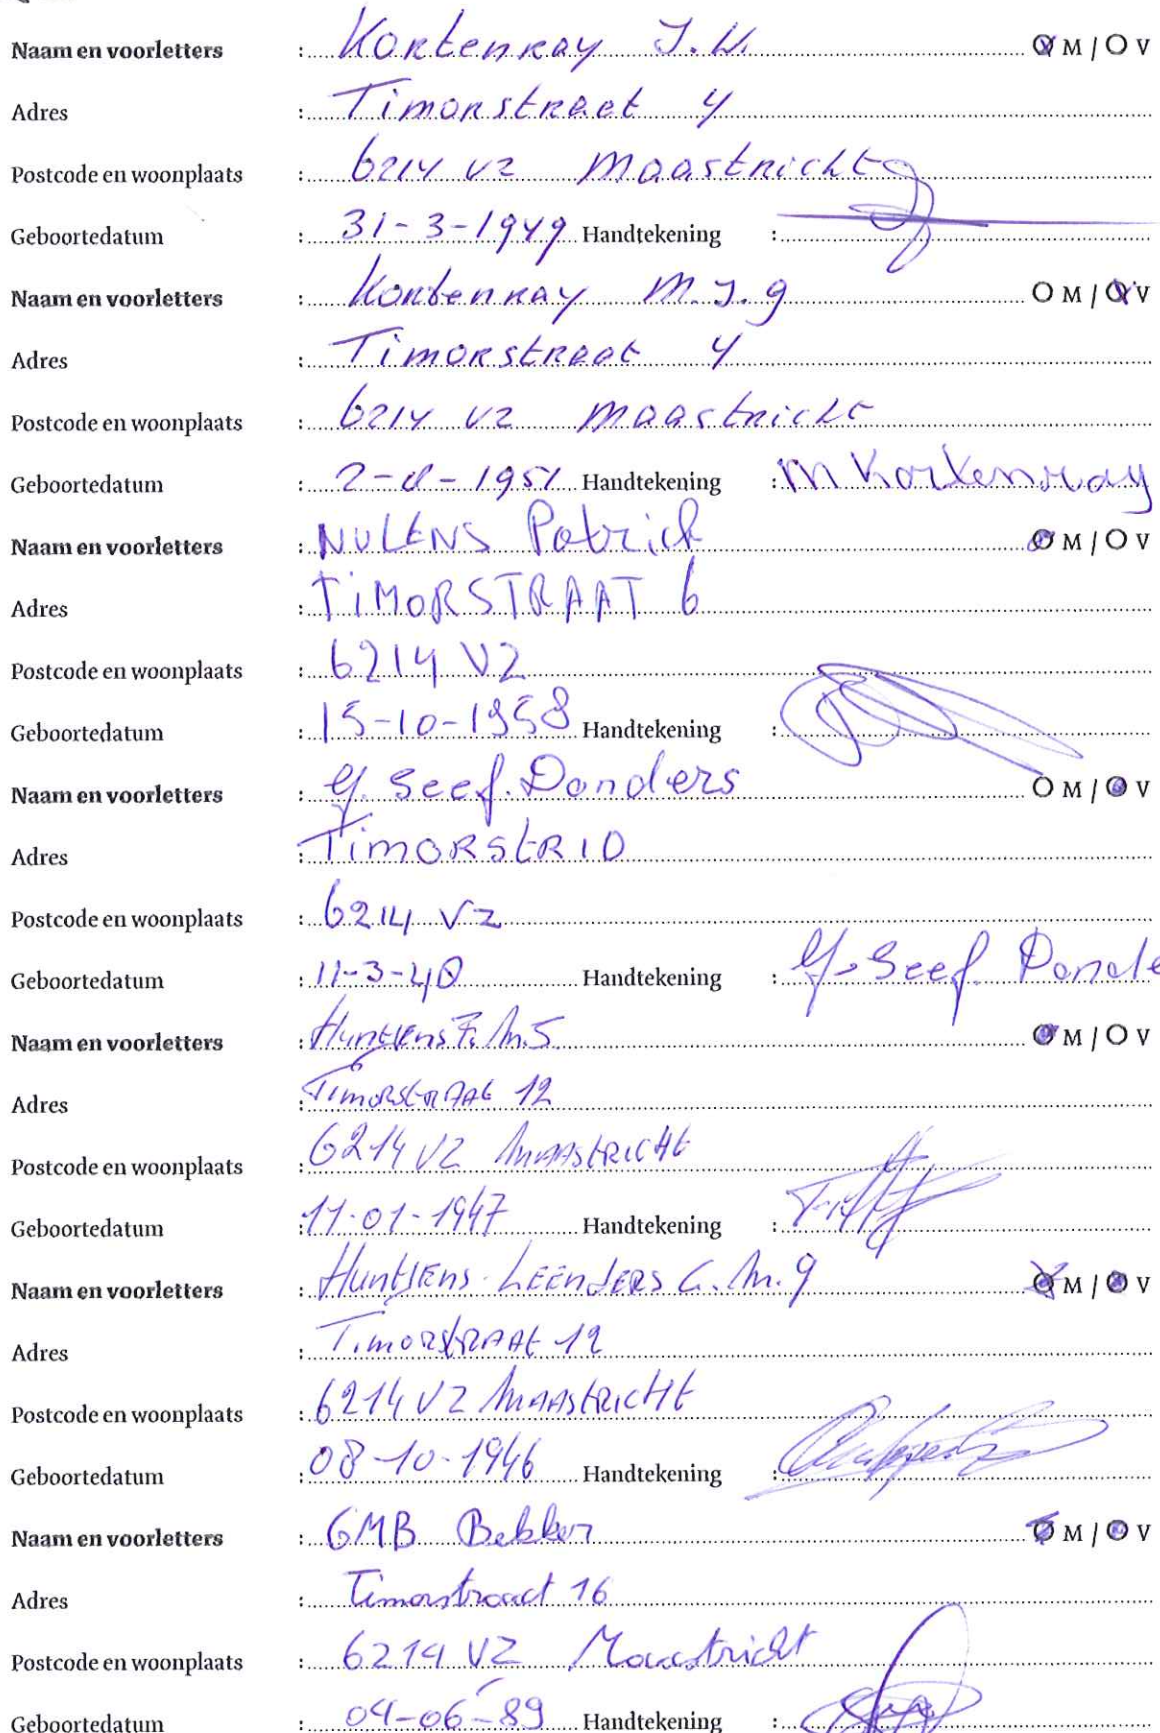 Naam en voorletters : Kortenray J.W. O M / O V
Adres : Timorstraat 4
Postcode en woonplaats : 6214 VZ Maastricht
Geboortedatum : 31-3-1949 Handtekening :
Naam en voorletters : Kortenray M.J.G O M / O V
Adres : Timorstraat 4
Postcode en woonplaats : 6214 VZ Maastricht
Geboortedatum : 2-8-1951 Handtekening : M Kortenray
Naam en voorletters : NULENS Patrick O M / O V
Adres : TiMORSTRAAT 6
Postcode en woonplaats : 6214 VZ
Geboortedatum : 15-10-1958 Handtekening :
Naam en voorletters : Y. Seef. Donders O M / O V
Adres : TimORStR 10
Postcode en woonplaats : 6214 VZ
Geboortedatum : 11-3-40 Handtekening : Y. Seef. Donde
Naam en voorletters : Huntjens F.M.J O M / O V
Adres : TimorstraAt 12
Postcode en woonplaats : 6214 VZ MAAStRICHt
Geboortedatum : 11-01-1947 Handtekening :
Naam en voorletters : HuntjEns-LEEnders C.M.G O M / O V
Adres : TimorstRAAt 12
Postcode en woonplaats : 6214 VZ MAAStRICHt
Geboortedatum : 08-10-1946 Handtekening :
Naam en voorletters : GMB Bekker O M / O V
Adres : Timorstraat 16
Postcode en woonplaats : 6214 VZ Maastricht
Geboortedatum : 04-06-89 Handtekening :